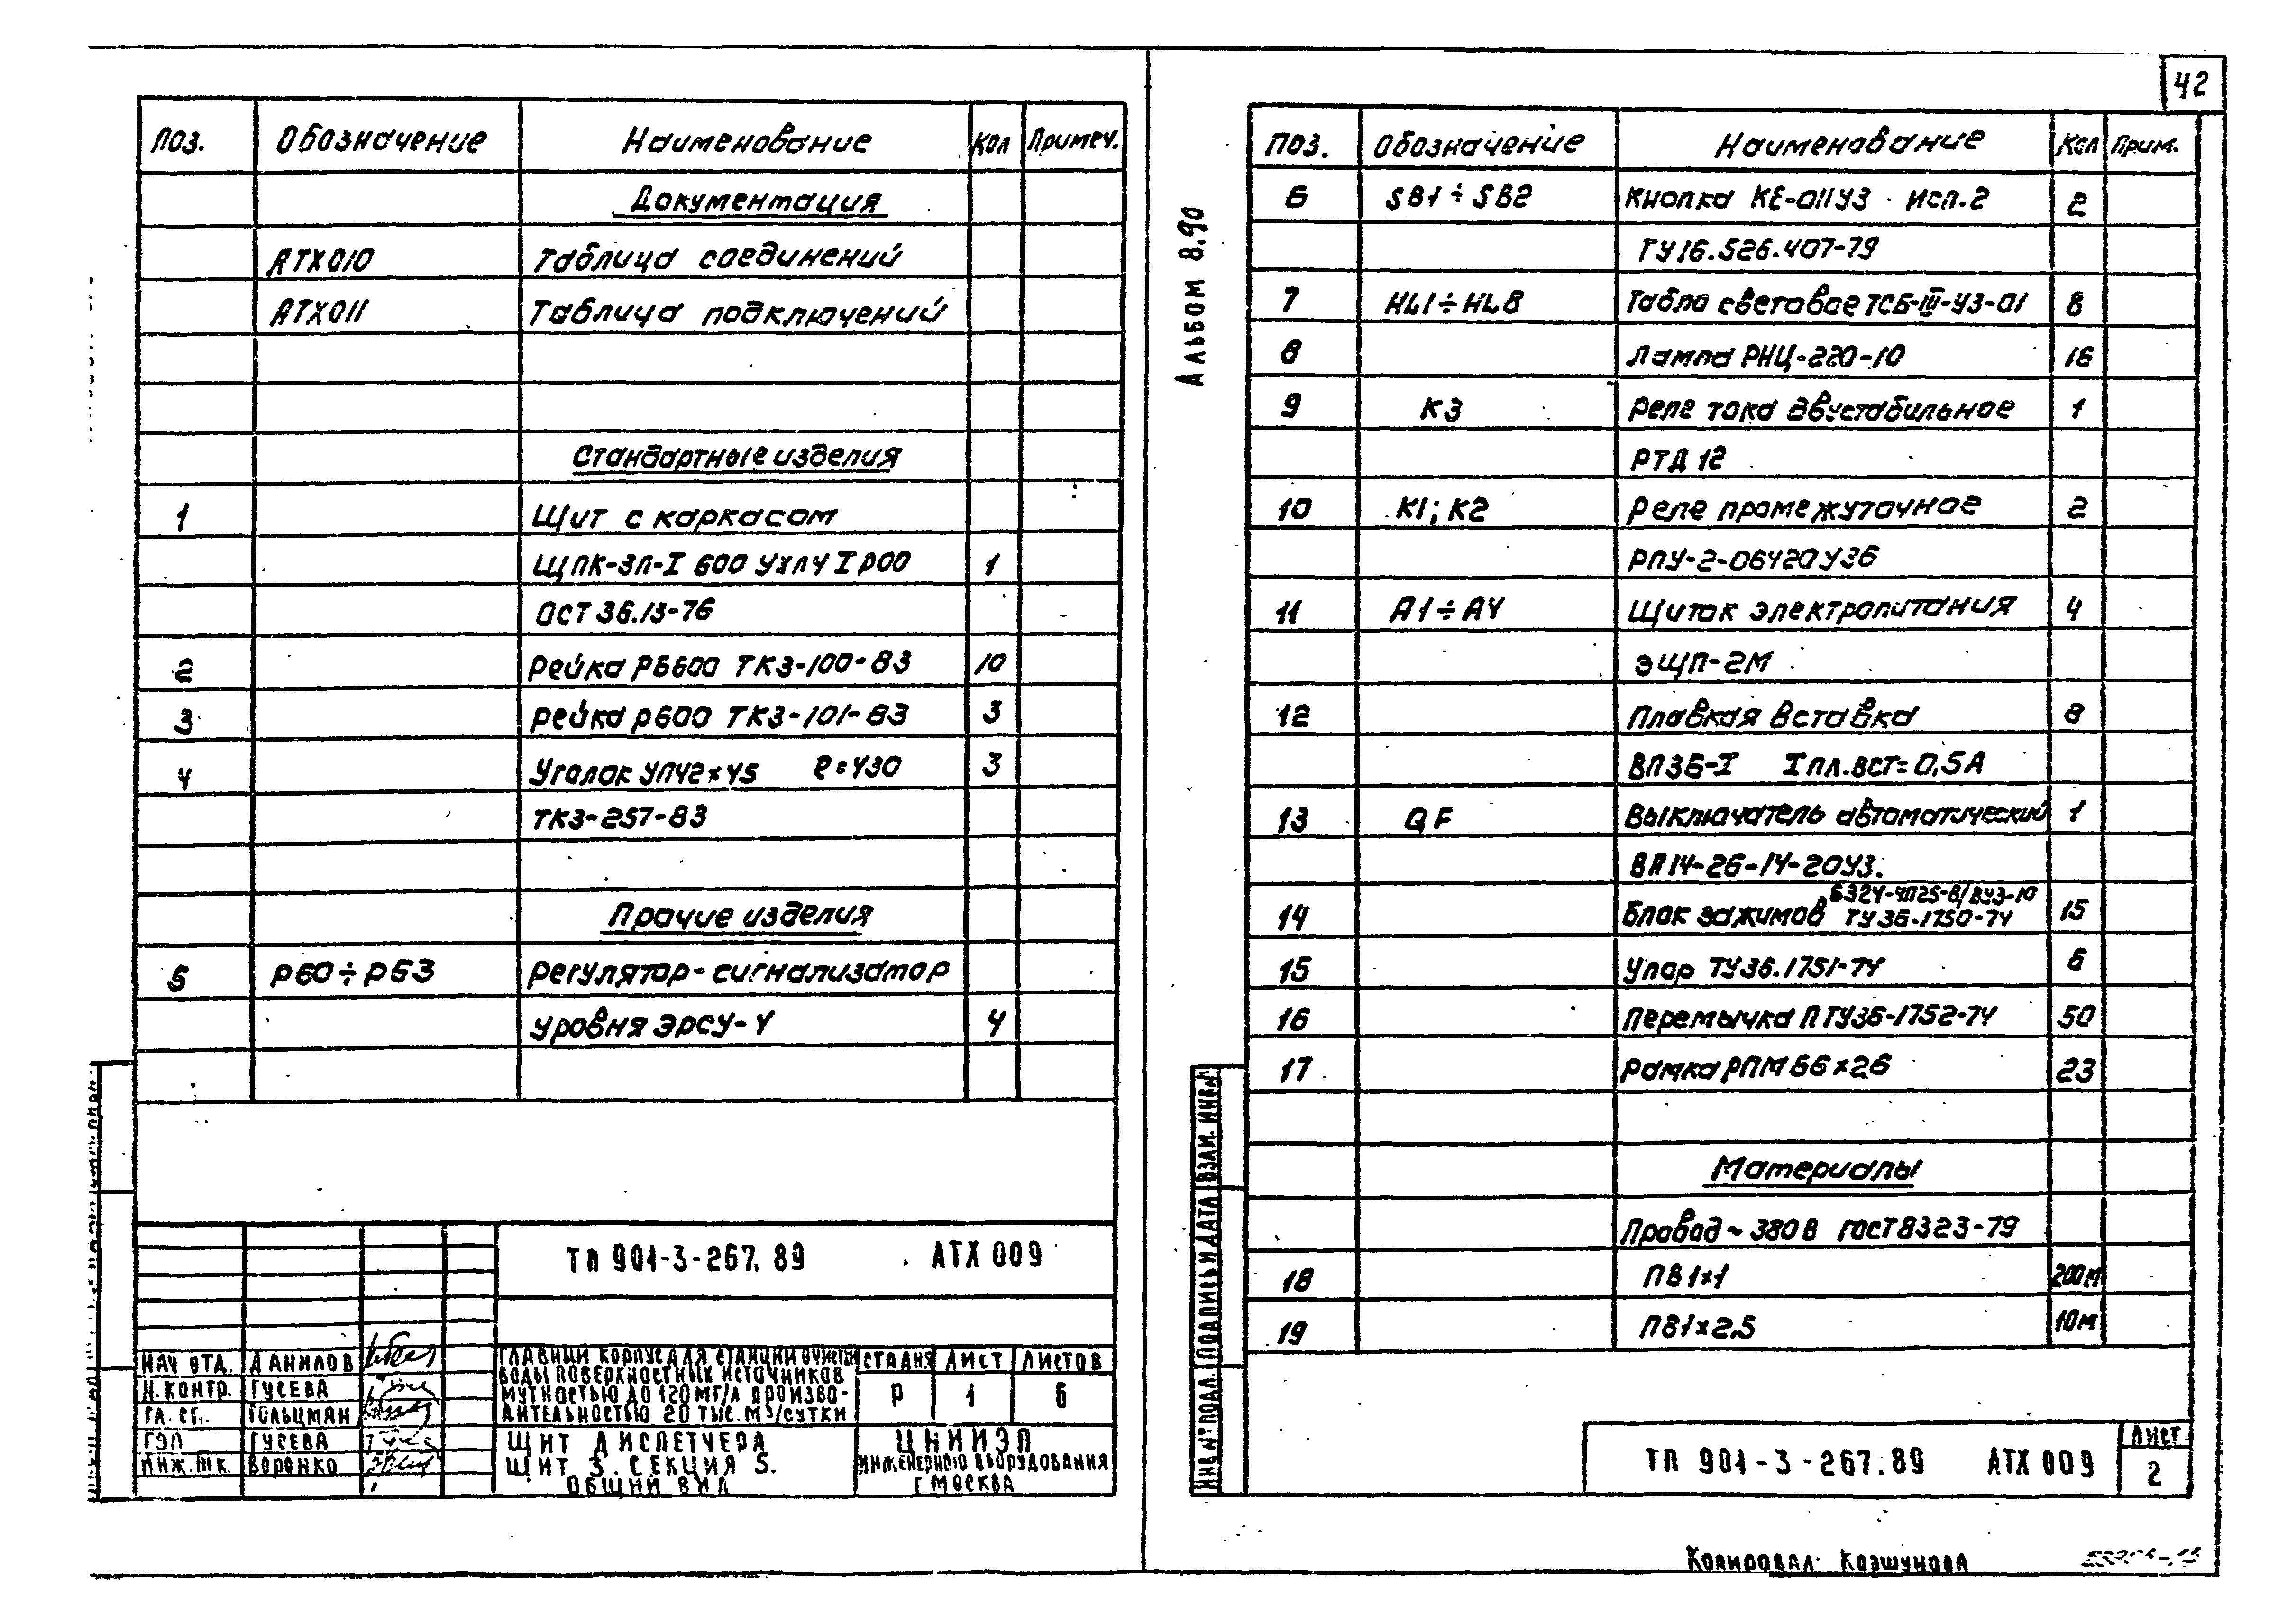 42
Поз. Обозначение Наименование Кол Примеч.
Документация
АТХ010 Таблица соединений
АТХ011 Таблица подключений
Стандартные изделия
1 Щит с каркасом
ЩПК-ЗП-I 600 УХЛ4 IР00 1
ОСТ 36.13-76
2 Рейка РБ600 ТК3-100-83 10
3 Рейка Р600 ТК3-101-83 3
4 Уголок УП42×45 ℓ=430 3
ТК3-257-83
Прочие изделия
5 Р60÷Р63 Регулятор-сигнализатор
уровня ЭРСУ-4 4
ТП 901-3-267.89 АТХ 009
НАЧ ОТД. ДАНИЛОВ
Н.КОНТР. ГУСЕВА
ГЛ. СП. ГОЛЬЦМАН
ГЭП ГУСЕВА
ИНЖ.IIК. ВОРОНКО
ГЛАВНЫЙ КОРПУС ДЛЯ СТАНЦИИ ОЧИСТКИ
ВОДЫ ПОВЕРХНОСТНЫХ ИСТОЧНИКОВ
МУТНОСТЬЮ ДО 120МГ/Л ПРОИЗВО-
ДИТЕЛЬНОСТЬЮ 20 ТЫС. М³/СУТКИ
СТАДИЯ ЛИСТ ЛИСТОВ
Р 1 6
ЩИТ ДИСПЕТЧЕРА
ЩИТ 3. СЕКЦИЯ 5.
ОБЩИЙ ВИД
ЦНИИЭП
ИНЖЕНЕРНОГО ОБОРУДОВАНИЯ
Г МОСКВА
АЛЬБОМ 8.90
Поз. Обозначение Наименование Кол Прим.
6 SB1÷SB2 Кнопка КЕ-011У3 исп.2 2
ТУ16.526.407-79
7 HL1÷HL8 Табло световое ТСБ-III-У3-01 8
8 Лампа РНЦ-220-10 16
9 К3 Реле тока двустабильное 1
РТД 12
10 К1; К2 Реле промежуточное 2
РПУ-2-06420У3Б
11 А1÷А4 Щиток электропитания 4
ЭЩП-2М
12 Плавкая вставка 8
ВПЗБ-I Iпл.вст=0,5А
13 QF Выключатель автоматический 1
ВА14-26-14-20У3.
14 Блок зажимов Б324-4П25-В/ВУ3-10 ТУ36-1750-74 15
15 Упор ТУ36.1751-74 6
16 Перемычка П ТУ36-1752-74 50
17 Рамка РПМ 66×26 23
Материалы
Провод ~380В ГОСТ 8323-79
18 ПВ1×1 200м
19 ПВ1×2.5 10м
ИНВ.№ ПОДЛ. ПОДПИСЬ И ДАТА ВЗАМ. ИНВ.№
ТП 901-3-267.89 АТХ 009
ЛИСТ
2
Копировал: Козшунова